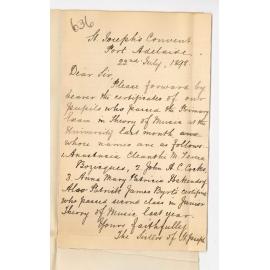 636
St Joseph's Convent
Port Adelaide
22nd July, 1898
Dear Sir,
Please forward by
bearer the certificates of our
pupils who passed the Primary
Exam in Theory of Music at the
University last month and
whose names are as follows.
1 Anastasia Eleanshi M. Teresa
2 John A. C. Cocks
3 Anna Mary Patricia
Also Patrick James Byrt's certificate
who passed second class in Junior
Theory of Music last year.
Yours faithfully
The Sisters of St Joseph